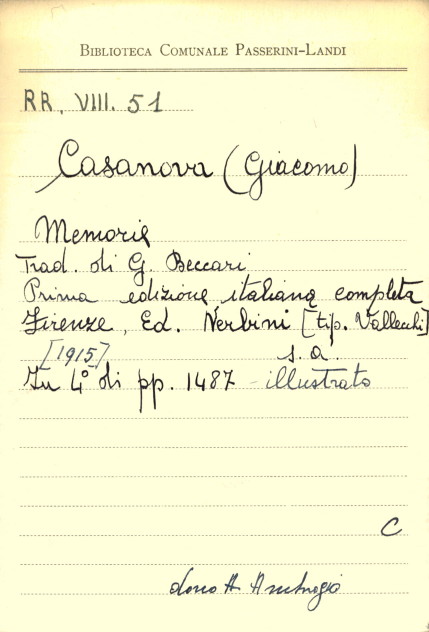 BIBLIOTECA COMUNALE PASSERINI-LANDI
RR. VIII. 51
Casanova (Giacomo)
Memorie
Trad. di G. Beccari
Prima edizione italiana completa
Firenze, Ed. Nerbini [tip. Vallecchi]
[1915] s. a.
In 4° di pp. 1487 - illustrato
C
dono A. Ambrogio